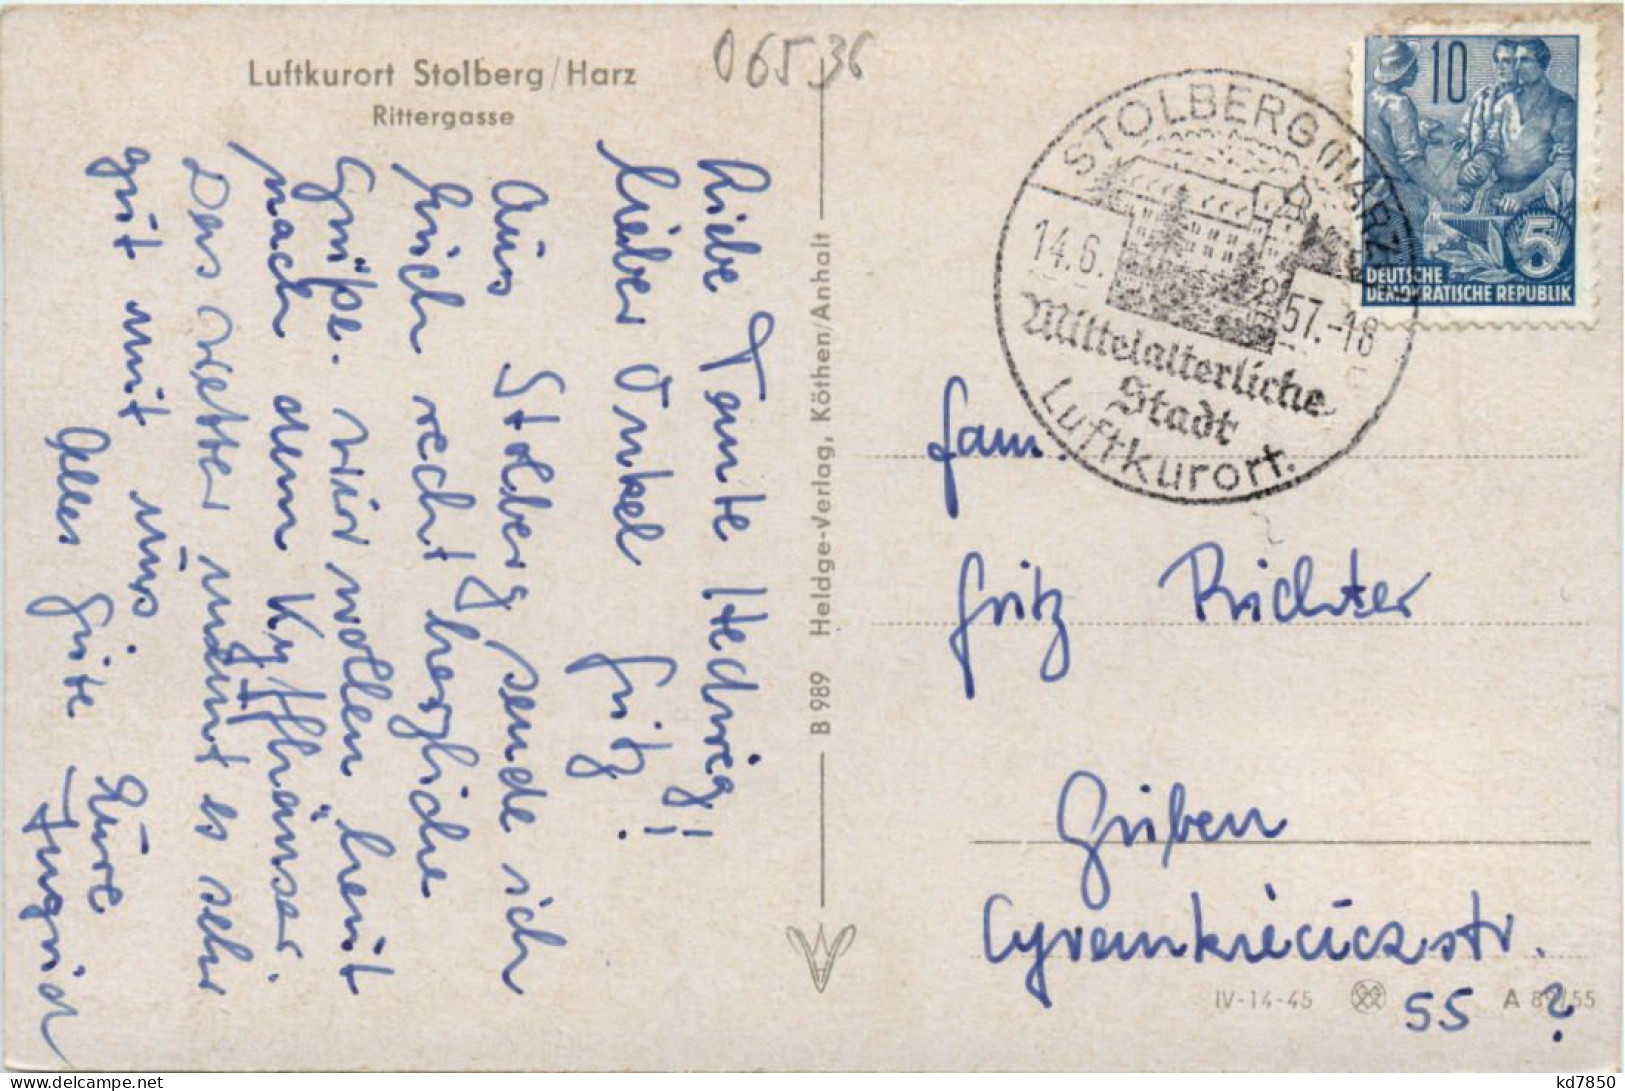 Luftkurort Stolberg/Harz
Rittergasse
06536
Liebe Tante Hedwig!
lieber Onkel Fritz!
Aus Stolberg sende ich
Euch recht herzliche
Grüße. Wir wollen heut
nach dem Kyffhäuser.
Das Wetter meint es sehr
gut mit uns.
Alles Gute Eure
Ingrid
B 989 Heldge-Verlag, Köthen/Anhalt
STOLBERG (HARZ)
14.6. 57.-18
Mittelalterliche
Stadt
Luftkurort.
10
5
DEUTSCHE
DEMOKRATISCHE REPUBLIK
Fam.
Fritz Richter
Guben
str.
55 ?
IV-14-45 A 89/55
kd7850